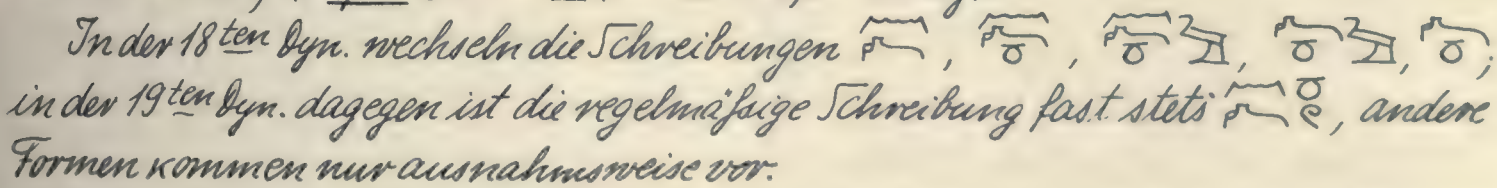 In der 18ten Dyn. wechseln die Schreibungen , , , , ;
in der 19ten Dyn. dagegen ist die regelmäßige Schreibung fast stets , andere
Formen kommen nur ausnahmsweise vor.